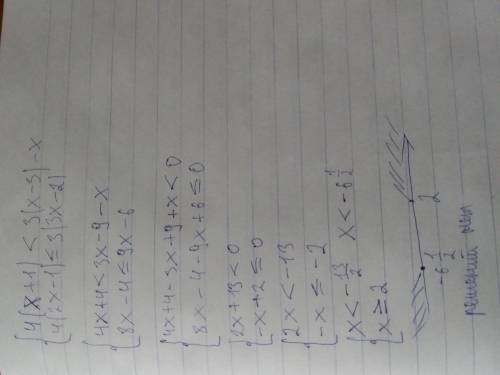 {4(x+1) < 3(x-3) - x
{4(2x-1) ≤ 3(3x-2)
{4x+4 < 3x-9-x
{8x-4 ≤ 9x-6
{4x+4-3x+9+x < 0
{8x-4-9x+6 ≤ 0
{2x+13 < 0
{-x+2 ≤ 0
{2x < -13
{-x ≤ -2
{x < -13/2 x < -6 1/2
{x ≥ 2
-6 1/2 2
решений нет